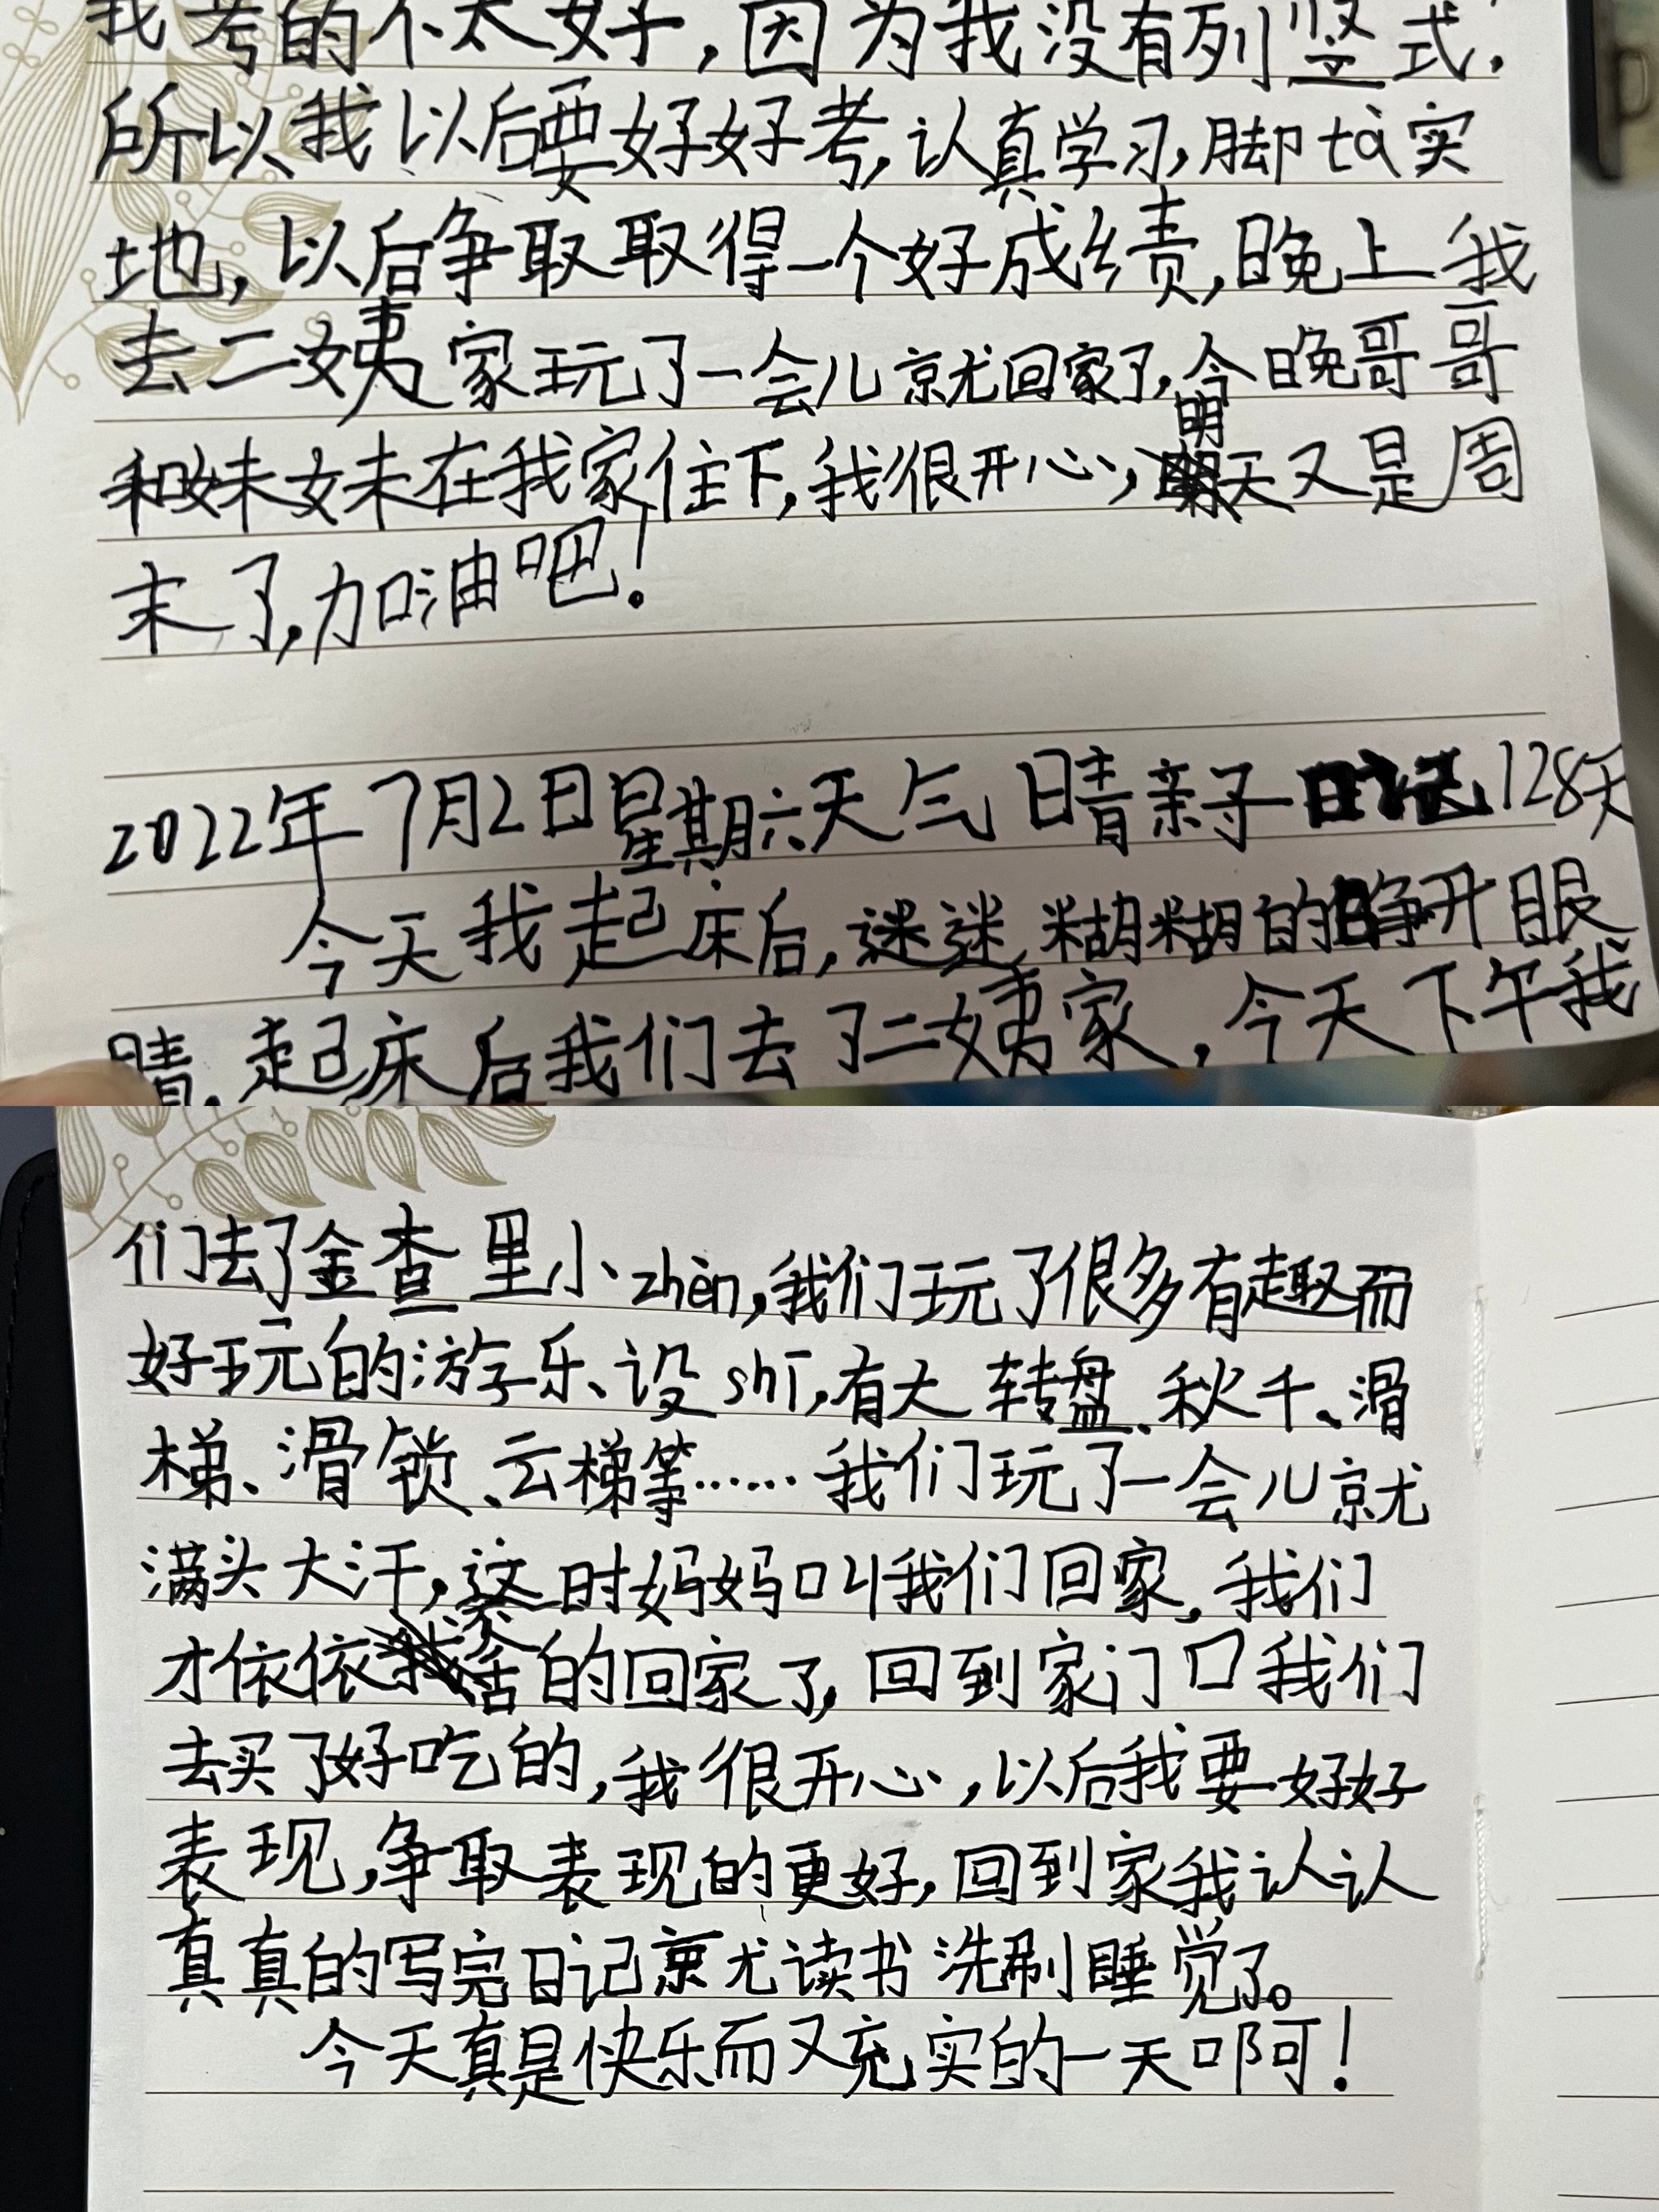 我考的不太好，因为我没有列竖式，
所以我以后要好好考，认真学习，脚tà实
地，以后争取取得一个好成绩，晚上我
去二姨家玩了一会儿就回家了，今晚哥哥
和妹妹在我家住下，我很开心，明天又是周
末了，加油吧！
2022年7月2日星期六天气晴亲子日记128天
今天我起床后，迷迷糊糊的睁开眼
睛，起床后我们去了二姨家，今天下午我
们去了金查里小zhèn，我们玩了很多有趣而
好玩的游乐、设shī，有大转盘、秋千、滑
梯、滑锁、云梯等……我们玩了一会儿就
满头大汗，这时妈妈叫我们回家，我们
才依依不舍的回家了，回到家门口我们
去买了好吃的，我很开心，以后我要好好
表现，争取表现的更好，回到家我认认
真真的写完日记就读书洗刷睡觉了。
今天真是快乐而又充实的一天啊！